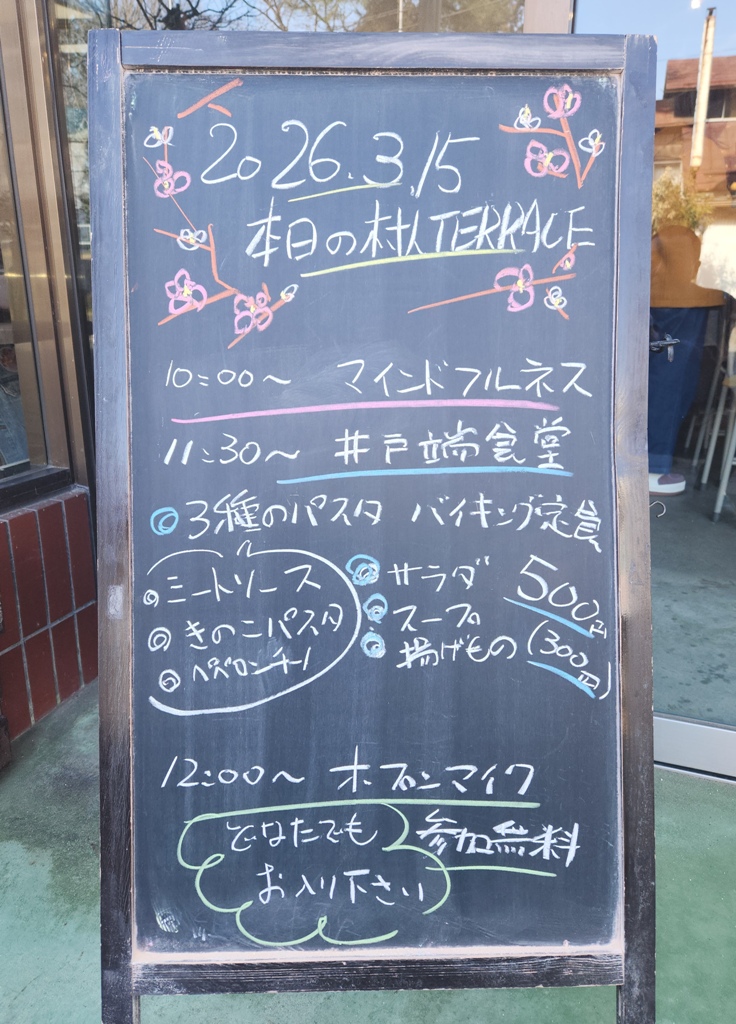 2026.3.15
本日の村人TERRACE
10:00〜 マインドフルネス
11:30〜 井戸端食堂
◎3種のパスタ バイキング定食
◎ミートソース
◎きのこパスタ
◎ペペロンチーノ
◎サラダ
◎スープ
◎揚げもの
500円
(300円)
12:00〜 オープンマイク
どなたでも
お入り下さい
参加無料